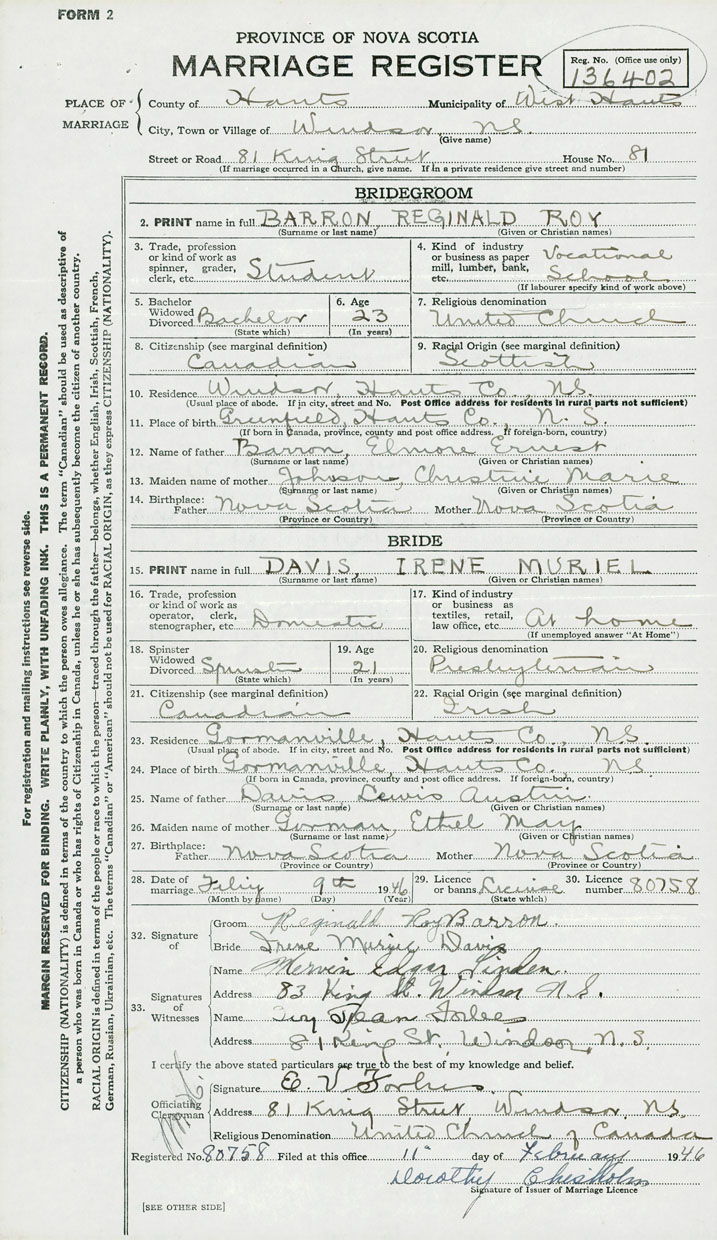 FORM 2
PROVINCE OF NOVA SCOTIA
MARRIAGE REGISTER
Reg. No. (Office use only)
136402
PLACE OF MARRIAGE
County of Hants Municipality of West Hants
City, Town or Village of Windsor, N.S.
(Give name)
Street or Road 81 King Street House No. 81
(If marriage occurred in a Church, give name. If in a private residence give street and number)
BRIDEGROOM
2. PRINT name in full BARRON, REGINALD ROY
(Surname or last name) (Given or Christian names)
3. Trade, profession or kind of work as spinner, grader, clerk, etc. Student
4. Kind of industry or business as paper mill, lumber, bank, etc. Vocational School
(If labourer specify kind of work above)
5. Bachelor Widowed Divorced Bachelor
(State which)
6. Age 23
(In years)
7. Religious denomination
United Church
8. Citizenship (see marginal definition)
Canadian
9. Racial Origin (see marginal definition)
Scottish
10. Residence Windsor, Hants Co., N.S.
(Usual place of abode. If in city, street and No. Post Office address for residents in rural parts not sufficient)
11. Place of birth Greenfield, Hants Co., N.S.
(If born in Canada, province, county and post office address. If foreign-born, country)
12. Name of father Barron, Elmore Ernest
(Surname or last name) (Given or Christian names)
13. Maiden name of mother Johnson, Christine Marie
(Surname or last name) (Given or Christian names)
14. Birthplace: Father Nova Scotia Mother Nova Scotia
(Province or Country) (Province or Country)
BRIDE
15. PRINT name in full DAVIS, IRENE MURIEL
(Surname or last name) (Given or Christian names)
16. Trade, profession or kind of work as operator, clerk, stenographer, etc. Domestic
17. Kind of industry or business as textiles, retail, law office, etc. At home
(If unemployed answer "At Home")
18. Spinster Widowed Divorced Spinster
(State which)
19. Age 21
(In years)
20. Religious denomination
Presbyterian
21. Citizenship (see marginal definition)
Canadian
22. Racial Origin (see marginal definition)
Irish
23. Residence Gormanville, Hants Co., N.S.
(Usual place of abode. If in city, street and No. Post Office address for residents in rural parts not sufficient)
24. Place of birth Gormanville, Hants Co., N.S.
(If born in Canada, province, county and post office address. If foreign-born, country)
25. Name of father Davis Lewis Austin
(Surname or last name) (Given or Christian names)
26. Maiden name of mother Gorman, Ethel May
(Surname or last name) (Given or Christian names)
27. Birthplace: Father Nova Scotia Mother Nova Scotia
(Province or Country) (Province or Country)
28. Date of marriage 9th 1946
(Month by name) (Day) (Year)
29. Licence or banns License
(State which)
30. Licence number 80758
32. Signature of
Groom Reginald Roy Barron
Bride Irene Muriel Davis
33. Signatures of Witnesses
Name Mervin Edgar Linden
Address 83 King St. Windsor N.S.
Name Jean Forbes
Address 81 King St., Windsor, N.S.
I certify the above stated particulars are true to the best of my knowledge and belief.
Officiating Clergyman
Signature E. V Forbes
Address 81 King Street, Windsor, N.S.
Religious Denomination United Church of Canada
Registered No. 80758 Filed at this office 11" day of February 1946
Dorothy Chisholm
Signature of Issuer of Marriage Licence
[SEE OTHER SIDE]
For registration and mailing instructions see reverse side.
MARGIN RESERVED FOR BINDING. WRITE PLAINLY, WITH UNFADING INK. THIS IS A PERMANENT RECORD.
CITIZENSHIP (NATIONALITY) is defined in terms of the country to which the person owes allegiance. The term "Canadian" should be used as descriptive of
a person who was born in Canada or who has rights of Citizenship in Canada, unless he or she has subsequently become the citizen of another country.
RACIAL ORIGIN is defined in terms of the people or race to which the person—traced through the father—belongs, whether English, Irish, Scottish, French,
German, Russian, Ukrainian, etc. The terms "Canadian" or "American" should not be used for RACIAL ORIGIN, as they express CITIZENSHIP (NATIONALITY).